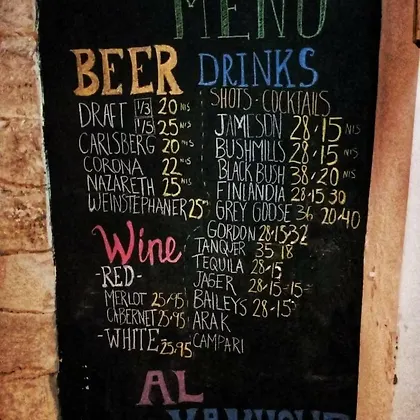 MENU
BEER
DRAFT 1/3 20 NIS
1/5 25 NIS
CARLSBERG 20 NIS
CORONA 22 NIS
NAZARETH 25 NIS
WEINSTEPHANER 25 NIS
Wine
-RED-
MERLOT 25/95
CABERNET 25-95
-WHITE 25,95
DRINKS
SHOTS · COCKTAILS
JAMESON 28-15 NIS
BUSHMILLS 28-15 NIS
BLACK BUSH 38-20 NIS
FINLANDIA 28-15 30
GREY GOOSE 36 20-40
GORDON 28-15-32
TANQUER 35 18
TEQUILA 28-15
JAGER 28-15-15
BAILEYS 28-15
ARAK
CAMPARI
AL